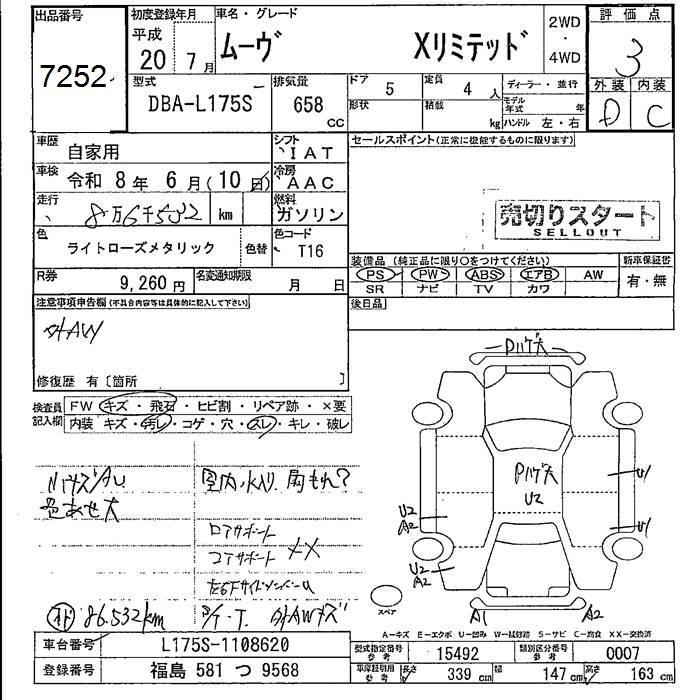 出品番号
7252
初度登録年月
平成
20年7月
車名・グレード
ムーヴ Xリミテッド
2WD
・
4WD
評価点
3
外装 内装
D C
型式
DBA-L175S
排気量
658
CC
ドア
5
定員
4人
ディーラー・並行
形状
積載
kg
モデル年式 年
ハンドル 左・右
車歴
自家用
シフト
IAT
車検
令和 8年 6月(10日)
冷房
AAC
走行
8万6千532 km
燃料
ガソリン
色
ライトローズメタリック
色替
色コード
T16
R券
9,260円
名変通知期限
月 日
セールスポイント(正常に機能するものに限ります)
売切りスタート
SELLOUT
装備品(純正品に限り○をつけてください)
新車保証書
PS PW ABS エアB AW
SR ナビ TV カワ
有・無
後日品
注意事項申告欄(不具合内容等は具体的に記入して下さい)
外AW
修復歴 有〔箇所 〕
検査員記入欄
FW キズ・飛石・ヒビ割・リペア跡・×要
内装 キズ・汚レ・コゲ・穴・スレ・キレ・破レ
色あせ大
ロアサポート
コアサポート XX
86.532km
外AWキズ
Pハゲ大
Pハゲ大
U2
U2
A2
U2
A2
U1
U1
A1
A2
スペア
A-キズ E-エクボ U-凹み W-補修跡 S-サビ C-腐食 XX-交換済
車台番号
L175S-1108620
登録番号
福島 581 つ 9568
型式指定番号
参考
15492
類別区分番号
参考
0007
車庫証明用
参考
長さ 339 cm
幅 147 cm
高さ 163 cm